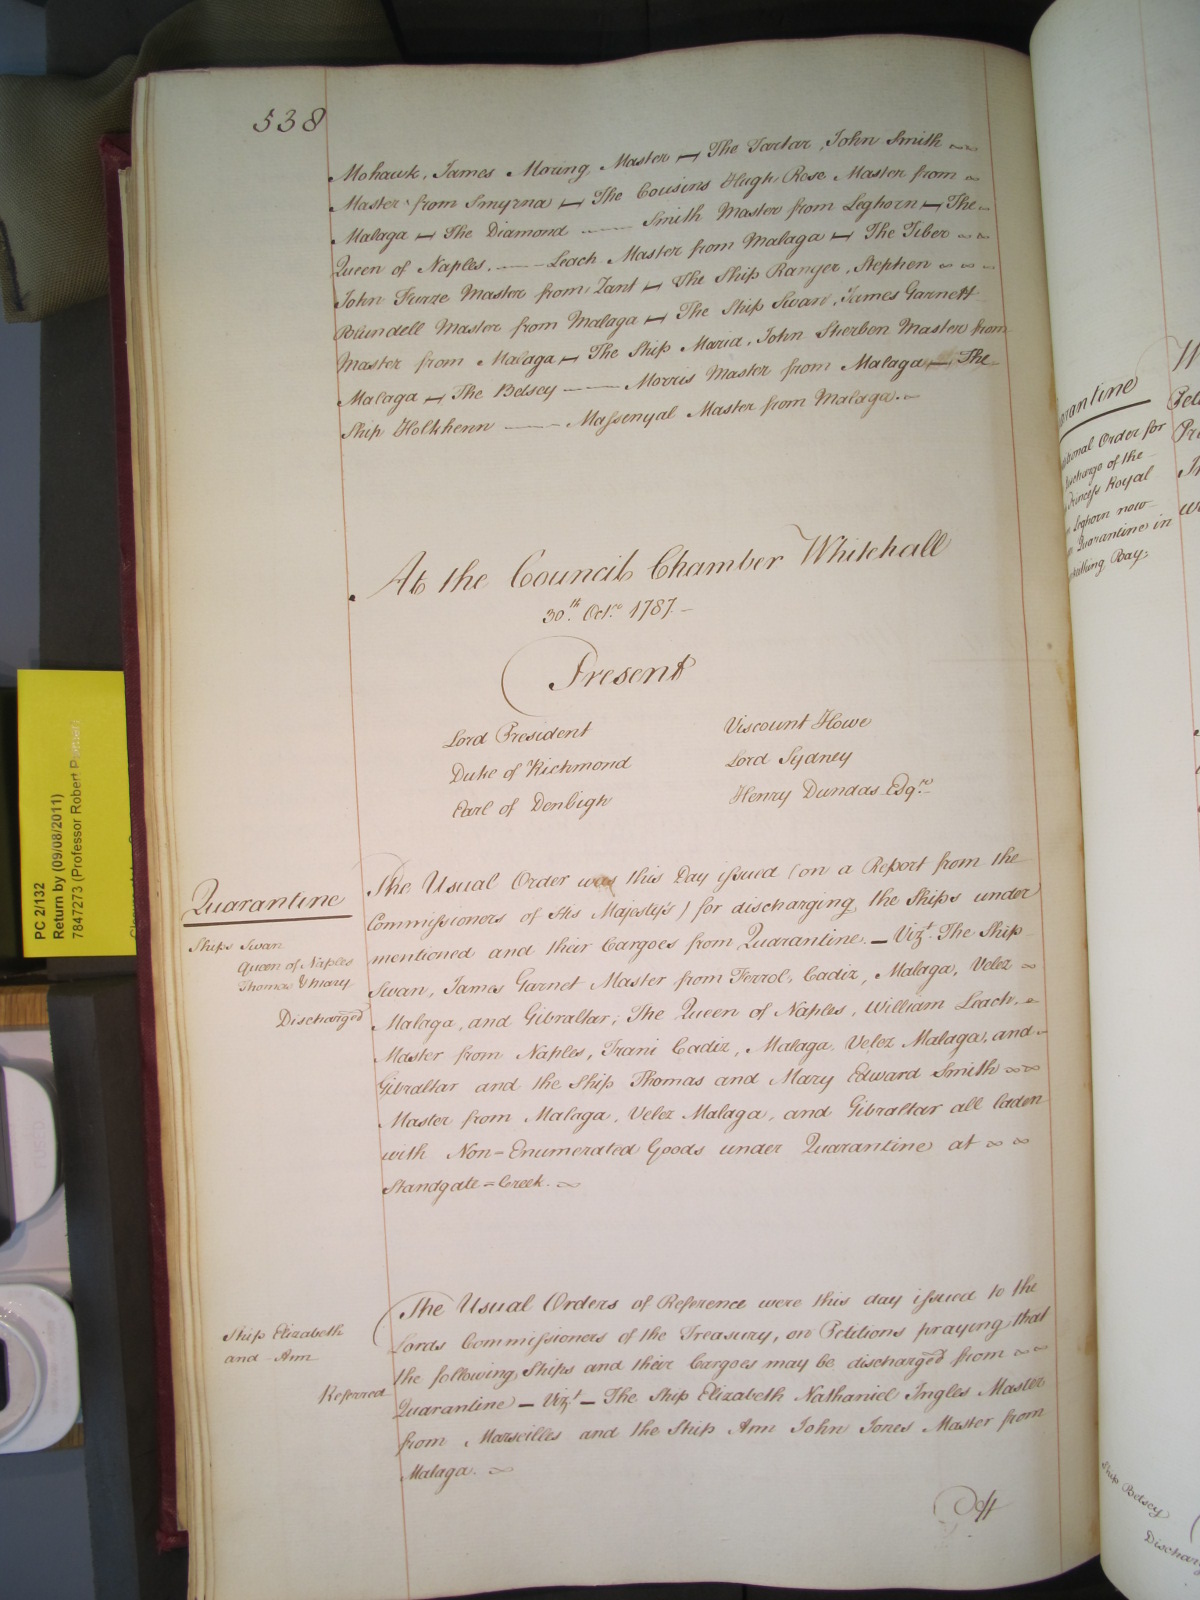 538
Mohawk, James Moring Master — The Tartar, John Smith
Master from Smyrna — The Cousins Hugh Rose Master from
Malaga — The Diamond —— Smith Master from Leghorn — The
Queen of Naples, —— Leach Master from Malaga — The Tiber
John Furze Master from Zant — The Ship Ranger, Stephen
Blundell Master from Malaga — The Ship Swan, James Garnett
Master from Malaga — The Ship Maria, John Sherbon Master from
Malaga — The Betsey —— Morris Master from Malaga — The
Ship Holkhenn —— Massenyal Master from Malaga. —
At the Council Chamber Whitehall
30th. Octre 1787. —
Present
Lord President
Duke of Richmond
Earl of Denbigh
Viscount Howe
Lord Sydney
Henry Dundas Esqre.
Quarantine
Ships Swan
Queen of Naples
Thomas & Mary
Discharged
The Usual Order was this Day issued (on a Report from the
Commissioners of His Majesty's) for discharging the Ships under
mentioned and their Cargoes from Quarantine. — Vizt. The Ship
Swan, James Garnet Master from Ferrol, Cadiz, Malaga, Velez
Malaga, and Gibraltar; The Queen of Naples, William Leach,
Master from Naples, Trani Cadiz, Malaga, Velez Malaga, and
Gibraltar and the Ship Thomas and Mary Edward Smith
Master from Malaga, Velez Malaga, and Gibraltar all laden
with Non-Enumerated Goods under Quarantine at
Standgate=Creek.
Ship Elizabeth
and Ann
Referred
The Usual Orders of Reference were this day issued to the
Lords Commissioners of the Treasury, on Petitions praying that
the following Ships and their Cargoes may be discharged from
Quarantine — Vizt — The Ship Elizabeth Nathaniel Ingles Master
from Marseilles and the Ship Ann John Jones Master from
Malaga.
PC 2/132
Return by (09/08/2011)
7847273 (Professor Robert
Order for
of the
Princess Royal
Leghorn now
Quarantine in
Bay.
Ship Betsey